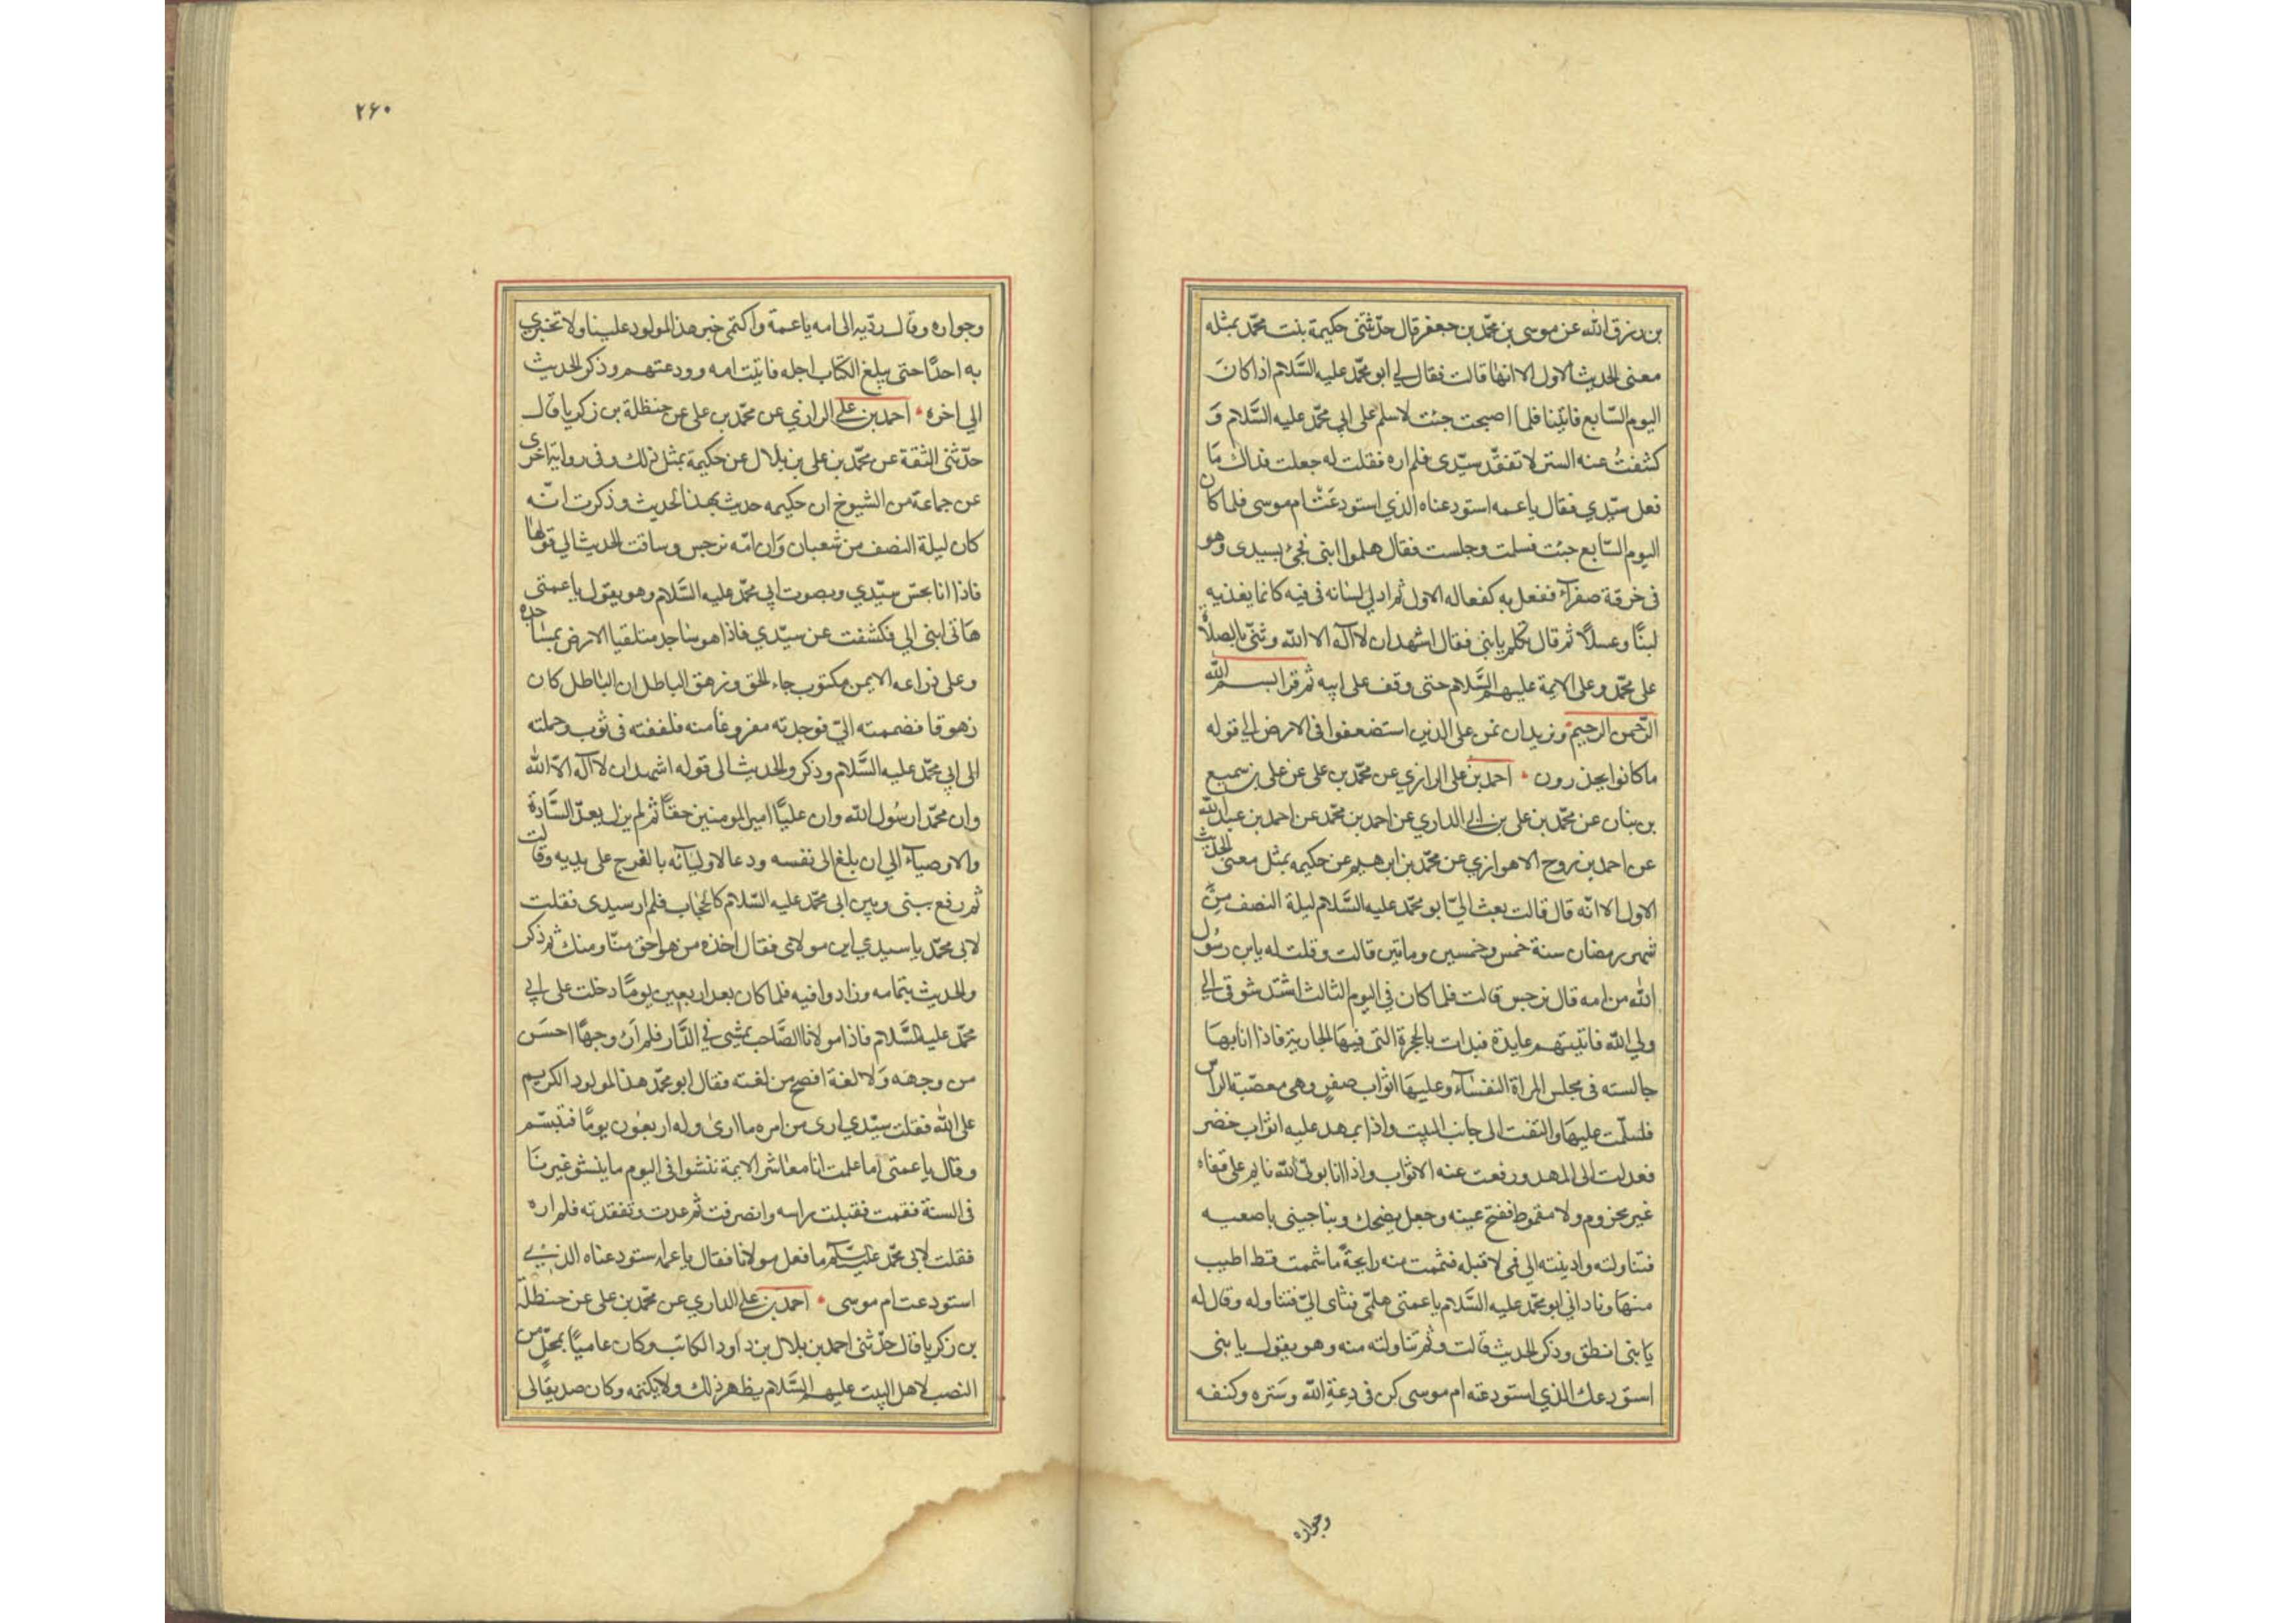 بن رزق الله عن موسى بن محمّد بن جعفر قال حدّثتنى حكيمة بنت محمّد بمثله
معنى الحديث الاول الا انها قالت فقال لي ابو محمّد عليه السَّلام اذا كانَ
اليوم السّابع فاتينا فلما اصبحت جئت لاسلم على ابي محمّد عليه السَّلام وَ
كشفتُ عنه الستر لا تفقّد سيّدى فلم اره فقلت له جعلت فداك مَا
فعل سيّدي فقال يا عمه استودعناه الذي استودعَت ام موسى فلما كان
اليوم السّابع جئت فسلمت وجلست فقال هلموا ابنى فجئ بسيدى وهو
فى خرقة صفرآء ففعل به كفعاله الاول ثم ادلي لسانه فى فيه كانما يغذيه
لبنًا وعسلًا ثم قال تكلم يا بنى فقال اشهد ان لا آله الا الله وثنّى بالصلاة
على محمّد وعلى الايمة عليهم السَّلام حتى وقف على ابيه ثم قرا بسم الله
الرّحمن الرحيم ونريد ان نمن على الذين استضعفوا فى الارض الي قوله
ما كانوا يحذرون • احمد بن على الرازي عن محمّد بن على عن على بن سميع
بن بنان عن محمّد بن على بن ابي الداري عن احمد بن محمّد عن احمد بن عبد الله
عن احمد بن روح الاهوازي عن محمّد بن ابرهيم عن حكيمه بمثل معنى الحديث
الاول الا انّه قال قالت بعث اليّ ابو محمّد عليه السَّلام ليلة النصف مِن
شهر رمضان سنة خمس وخمسين وماتين قالت وقلت له يابن رسُول
الله من امه قال نرجس قالت فلما كان في اليوم الثالث اشتدّ شوقى الي
ولي الله فاتيتهم عايدة فبدات بالحجرة التى فيهَا الجارية فاذا انا بهَا
جالسته فى مجلس المراة النفسَاء وعليهَا اثواب صفر وهى معصّبة الراس
فسلّمت عليهَا والتفت الى جانب البيت واذا بمهد عليه اثواب خضر
فعدلت الى المهد ورفعت عنه الاثواب واذا انا بولىّ الله نايم على قفاه
غير مخزوم ولا مقموط ففتح عينه وجعل يضحك ويناجينى باصعبه
فتناولته وادينته الى فمى لا قبله فشممت منه رايحةً ما شممت قط اطيب
منهَا ونادانى ابو محمّد عليه السَّلام يا عمتى هلمّى فتاى اليّ فتناوله وقال له
يَا بنى انطق وذكر الحديث قالت وثم تناولته منه وهو يقول يا بنى
استودعك الذي استودعته ام موسى كن فى دعة الله وستره وكنفه
وجواره
٢۶٠
وجواره وقال ردّيه الى امه يا عمة واكتمى خبر هذا المولود علينا ولا تخبري
به احدًا حتى يبلغ الكتاب اجله فاتيت امه وودعتهم وذكر الحديث
الي اخره • احمد بن على الرازي عن محمّد بن على عن حنظلة بن زكريا قال
حدّثنى الثقة عن محمّد بن على بن بلال عن حكيمة بمثل ذلك وفى رواية اخرى
عن جماعة من الشيوخ ان حكيمه حدثت بهذا الحديث وذكرت انّه
كان ليلة النصف من شعبان وَان امّه نرجس وساقت الحديث الي قولها
فاذا انا بحسّ سيّدي وبصوت ابي محمّد عليه السَّلام وهو يقول يا عمتى
هَاتى ابنى الي فكشفت عن سيّدي فاذا هو ساجد متلقيا الارض بمساجده
وعلى ذراعه الايمن مكتوب جاء الحق وزهق الباطل ان الباطل كان
زهوقا فضممته اليّ فوجدته مفروغا منه فلففته فى ثوب وحملته
الى ابي محمّد عليه السَّلام وذكر والحديث الى قوله اشهد ان لا آله الاّ الله
وان محمّدا رسُول الله وان عليًّا امير المومنين حقًا ثم لم يزل يعدّ السَّادة
والاوصيآء الي ان بلغ الى نفسه ودعا لاوليآئه بالفرج على يديه وقالت
ثم رفع بينى وبين ابى محمّد عليه السّلام كالحجاب فلم ار سيدى فقلت
لابى محمّد يا سيدي اين مولاى فقال اخذه من هو احق منّا ومنك ثم ذكر
والحديث بتمامه وزادوا فيه فلما كان بعد اربعين يومًا دخلت على ابي
محمّد عليه السَّلام فاذا مولانا الصَّاحب يمشى في الدَّار فلم ار وجهًا احسَن
من وجهَه وَلا لغة افصح من لغته فقال ابو محمّد هذا المولود الكريم
على الله فقلت سيّدي ارى من امره ما ارى وله اربعُون يومًا فتبسّم
وقال يا عمتى اما علمت انا معاشر الايمة ننشوا فى اليوم ما ينشو غيرنَا
فى السنة فقمت فقبلت راسه وانصرفت ثم عدت وتفقدته فلم اره
فقلت لابى محمّد عليه السَّلام ما فعل مولانا فقال يا عمه استودعناه الذي
استودعت ام موسى • احمد بن على الداري عن محمّد بن على عن حنظلة
بن زكريا قال حدّثنى احمد بن بلال بن داود الكاتب وكان عاميًا بمحلّ من
النصب لاهل البيت عليهم السَّلام يظهر ذلك ولا يكتمه وكان صديقا لى